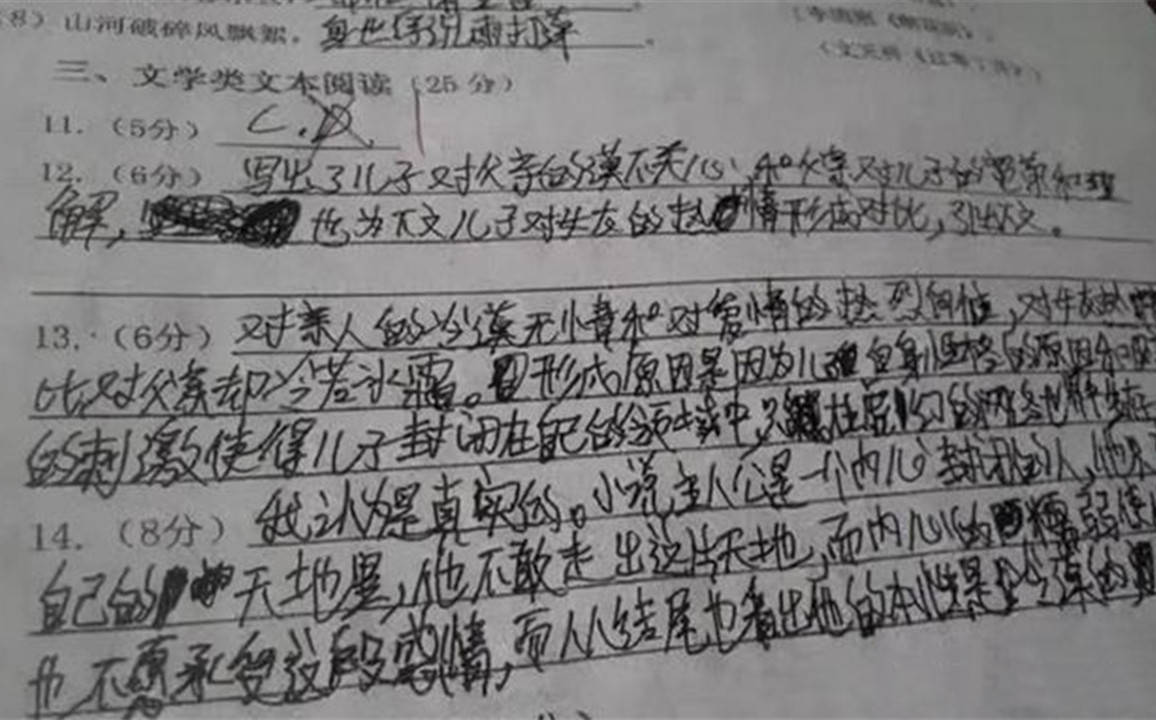 (8) 山河破碎风飘絮,身世浮沉雨打萍。
三、文学类文本阅读(25分)
11.(5分) C.D.
12.(6分) 写出了儿子对父亲的漠不关心,和父亲对儿子的宽容和理
解, 也为下文儿子对女友的热情形成对比,引出下文。
13.(6分) 对亲人的冷漠无情和对爱情的热烈向往,对女友热
比,对父亲却冷若冰霜。形成原因是因为儿 自身性格的原因和
的刺激使得儿子封闭在自己的领域中,只 在 的网络世界
14.(8分) 我认为是真实的。小说主人公是一个内心封闭的人,他
自己的 天地里,他不敢走出这片天地,而内心的 懦弱使
他不愿承受这段感情,而从结尾也看出他的本性是 冷漠的